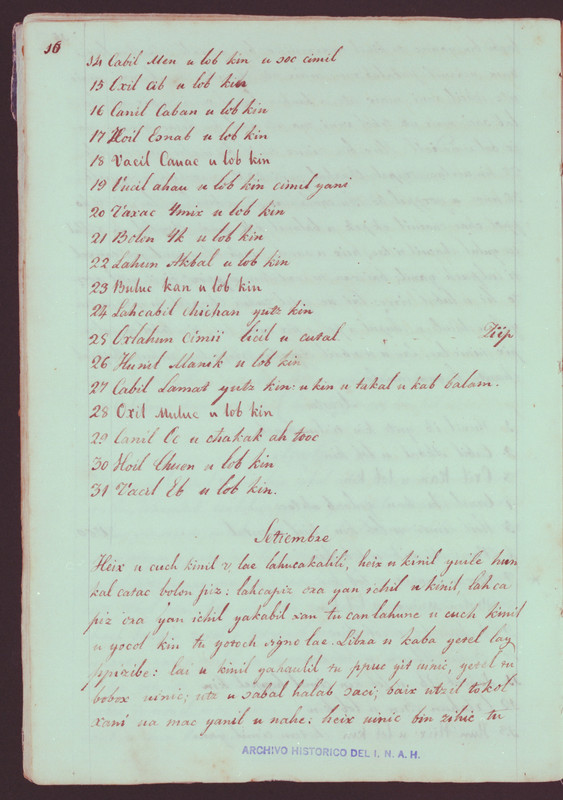 16
14 Cabil Men u lob kin u soc cimil
15 Oxil cib u lob kin
16 Canil Caban u lob kin
17 Hoil Esnab u lob kin
18 Vacil Cauac u lob kin
19 Vucil ahau u lob kin cimil yani
20 Vaxac Ymix u lob kin
21 Bolon Yk u lob kin
22 Lahun Akbal u lob kin
23 Buluc kan u lob kin
24 Lahcabil chichan yutz kin
25 Oxlahun cimii licil u cutal Tzip
26 Hunil Manik u lob kin
27 Cabil Lamat yutz kin: u kin u tukal u kab balam.
28 Oxil Muluc u lob kin
29 Canil Oc u chakak ah tooc
30 Hoil Chuen u lob kin
31 Vacil Eb u lob kin.
Setiembre
Heix u cuch kinil v, lae lahucakalili, heix u kinil yuile hun
kal catac bolon piz: lahcapiz ora yan ichil u kinil, lahca
piz ora yan ichil yakabil xan tu can lahunc u cuch kinil
u yocol kin tu yotoch signe lae. Libra u kaba yetel lay
ppizibe: lai u kinil yahaulil tu ppuc yit uinic, yetel tu
bobox uinic; utz u sabal halab saci; baix utzil tokol
xani ua mac yanil u nahe: heix uinic bin zihic tu
ARCHIVO HISTORICO DEL I. N. A. H.